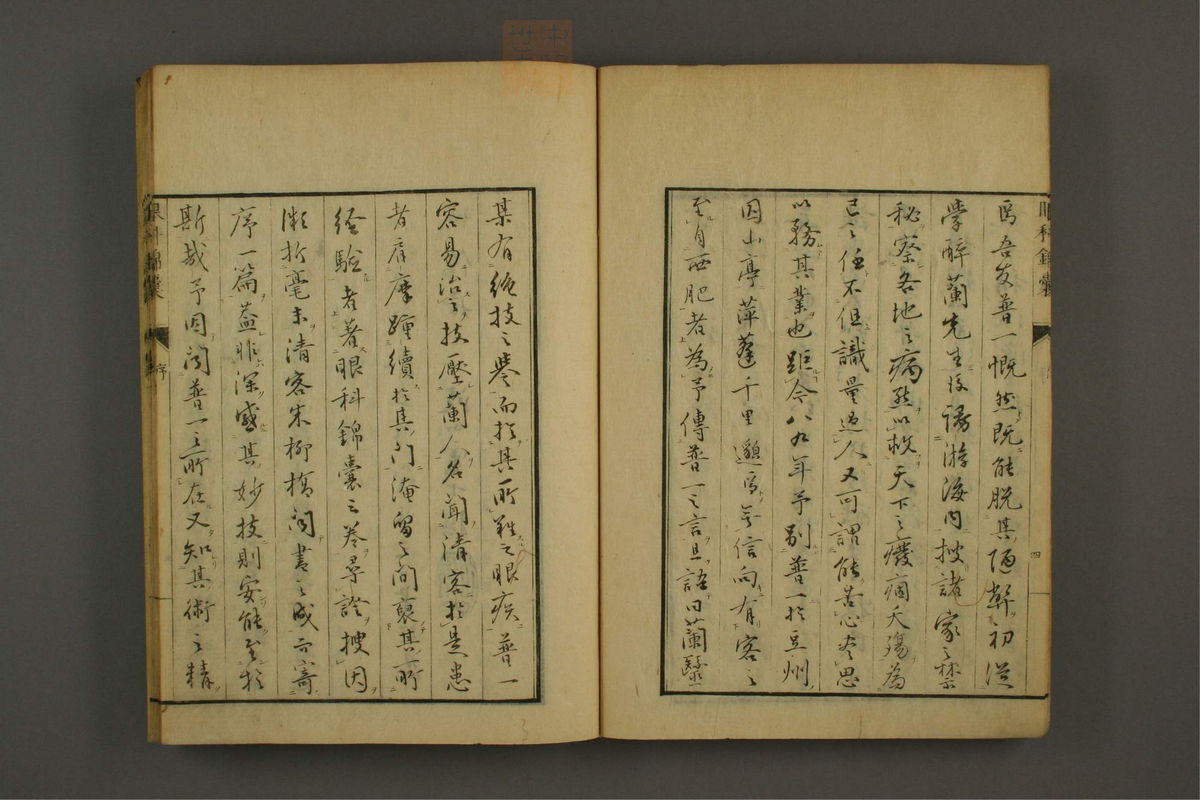 眼科錦囊
四
焉吾友普一慨然既能脫其陋弊初從
學醉蘭先生後漫游海內搜諸家之禁
秘察各地之病然以救天下之癈痼夭殤為
己之任不但識量過人又可謂能苦心盡思
以務其業也距今八九年予別普一於豆州
因山亭萍蓬千里邈焉無信向有客之
至自西肥者為予傳普一之言且語曰蘭醫
某有絕技之譽而於其所難之眼疾普一
容易治之技壓蘭人名聞清客於是患
者肩摩踵續於其門淹留之間裒其所
経驗者著眼科錦囊之卷尋證搜因
漸折毫末清客朱柳橋閱書之成亦寄
序一篇蓋非深感其妙技則安能至於
斯哉予因聞普一之所在又知其術之精
眼科錦囊
序